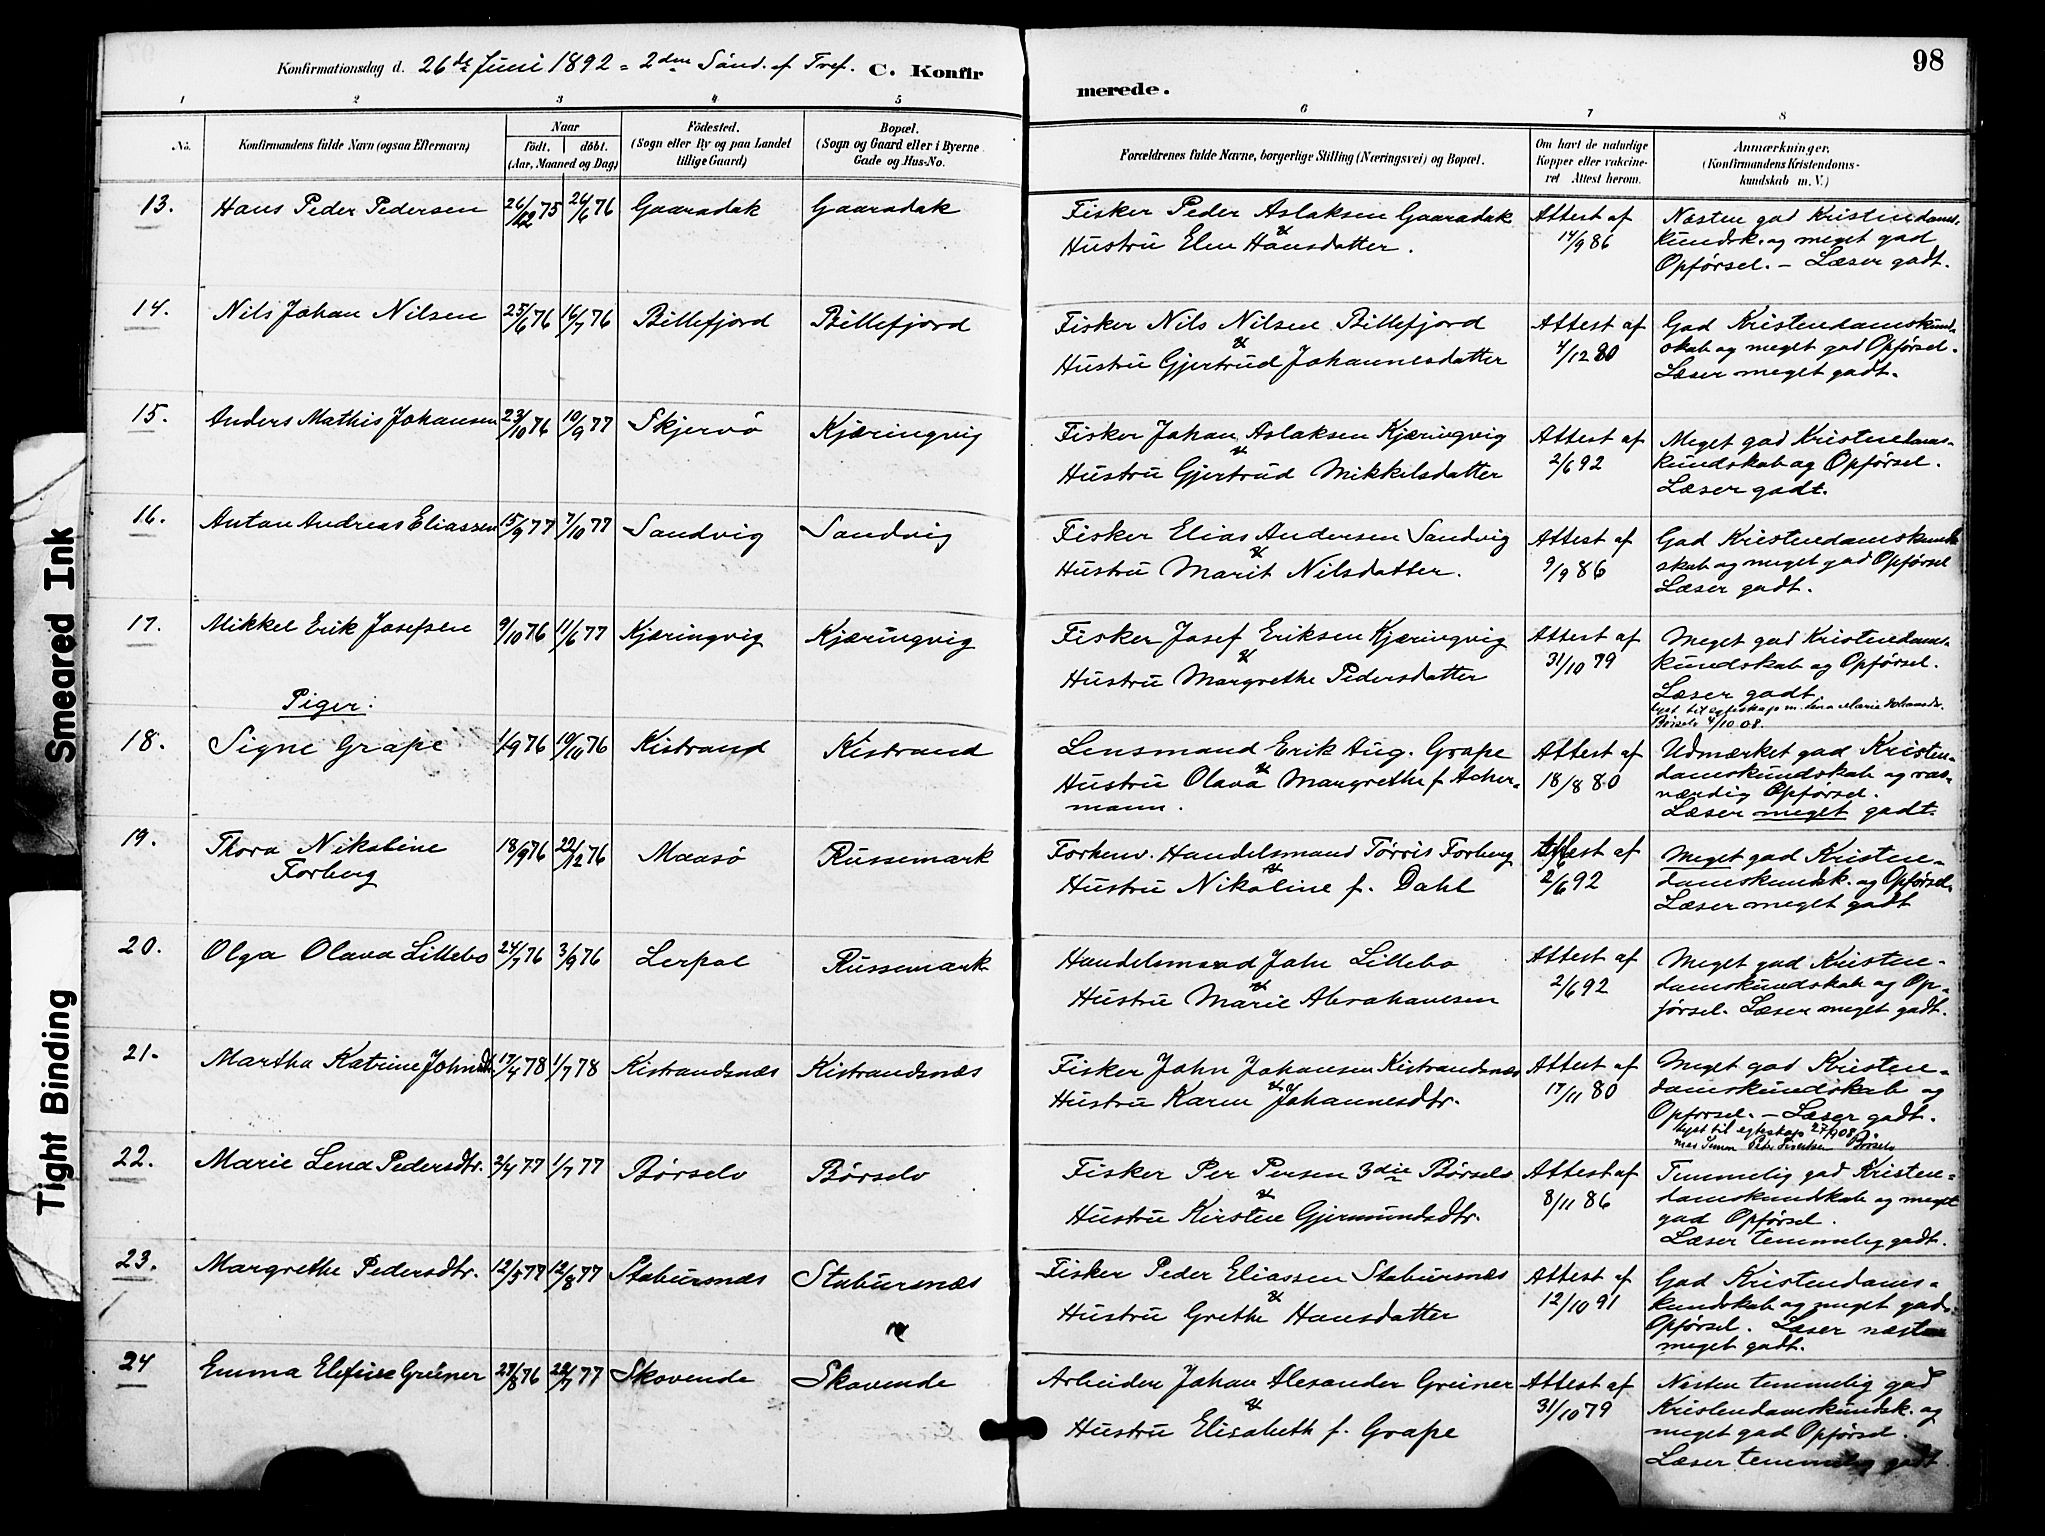 98
Konfirmationsdag d. 26de Juni 1892 = 2den Sönd. ef Tref. C. Konfir
merede.
1 2 3 4 5
6 7 8
No. Konfirmandens fulde Navn (ogsaa Efternavn) Naar födt. döbt. (Aar, Maaned og Dag) Födested. (Sogn eller By og paa Landet tillige Gaard) Bopæl. (Sogn og Gaard eller i Byerne Gade og Hus-No.
Forældrenes fulde Navne, borgerlige Stilling (Næringsvei) og Bopæl. Om havt de naturlige Kopper eller vakcineret Attest herom. Anmærkninger. (Konfirmandens Kristendomskundskab m. V.)
13. Hans Peder Pedersen 26/12 75 26/6 76 Gaaradak Gaaradak
Fisker Peder Aslaksen Gaaradak Attest af Næsten god Kristendoms-
&
Hustru Elen Hansdatter. 14/9 86 kundsk. og meget god
Opførsel. – Læser godt.
14. Nils Johan Nilsen 25/6 76 16/7 76 Billefjord Billefjord
Fisker Nils Nilsen Billefjord Attest af God Kristendomskund-
&
Hustru Gjertrud Johannesdatter 4/12 80 skab og meget god Opførsel.
Læser meget godt.
15. Anders Mathis Johansen 23/10 76 10/9 77 Skjervö Kjæringvig
Fisker Johan Aslaksen Kjæringvig Attest af Meget god Kristendoms-
&
Hustru Gjertrud Mikkelsdatter 2/6 92 kundskab og Opførsel.
Læser godt.
16. Anton Andreas Eliassen 15/9 77 7/10 77 Sandvig Sandvig
Fisker Elias Andersen Sandvig Attest af God Kristendomskund-
&
Hustru Marit Nilsdatter. 9/9 86 skab og meget god Opførsel
Læser godt.
17. Mikkel Erik Josefsen 9/10 76 11/6 77 Kjæringvig Kjæringvig
Fisker Josef Eriksen Kjæringvig Attest af Meget god Kristendoms-
&
Hustru Margrethe Pedersdatter 31/10 79 kundskab og Opførsel.
Læser godt
lyst til egteskap m. Lena Marie Johansdr.
Børselv 4/10 08.
Piger:
18. Signe Grape 1/9 76 10/10 76 Kistrand Kistrand
Lensmand Erik Aug. Grape Attest af Udmærket god Kristen-
&
Hustru Olava Margrethe f. Acker- 18/8 80 domskundskab og ros-
mann. værdig Opførsel.
Læser meget godt.
19. Thora Nikoline 18/9 76 22/12 76 Maasö Russemark
Forberg
Forhenv. Handelsmand Törris Forberg Attest af Meget god Kristen-
&
Hustru Nikoline f. Dahl 2/6 92 domskundsk. og Opførsel.
Læser meget godt
20. Olga Olava Lillebo 24/7 76 3/9 76 Lerpol Russemark
Handelsmand John Lillebo Attest af Meget god Kristen-
&
Hustru Marie Abrahamsen 2/6 92 domskundskab og Op-
førsel. Læser meget godt.
21. Martha Katrine Johnsdtr. 17/4 78 1/7 78 Kistrandsnæs Kistrandsnæs
Fisker John Johansen Kistrandsnæs Attest af Meget god Kristen-
&
Hustru Karen Johannesdtr. 17/11 80 domskundskab og
Opførsel. – Læser godt.
lyst til egteskap 27/9 08
med Simon Peder Børselv
22. Marie Lena Pedersdtr. 3/4 77 1/7 77 Børselv Børselv
Fisker Per Persen 3die Børselv Attest af Temmelig god Kristen-
&
Hustru Kirsten Gjermundsdtr. 8/11 86 domskundskab og meget
god Opførsel.
Læser temmelig godt.
23. Margrethe Pedersdtr. 12/5 77 12/8 77 Stabursnæs Stabursnæs
Fisker Peder Eliassen Stabursnæs Attest af God Kristendoms-
&
Hustru Grethe Hansdatter 12/10 91 kundskab og meget god
Opførsel. Læser næsten
meget godt.
24 Emma Elefine Greiner 27/8 76 22/7 77 Skovende Skovende
Arbeider Johan Alexander Greiner Attest af Næsten temmelig god
&
Hustru Elisabeth f. Grape 31/10 79 Kristendomskundsk. og
meget god Opførsel.
Læser temmelig godt
Smeared Ink
Tight Binding